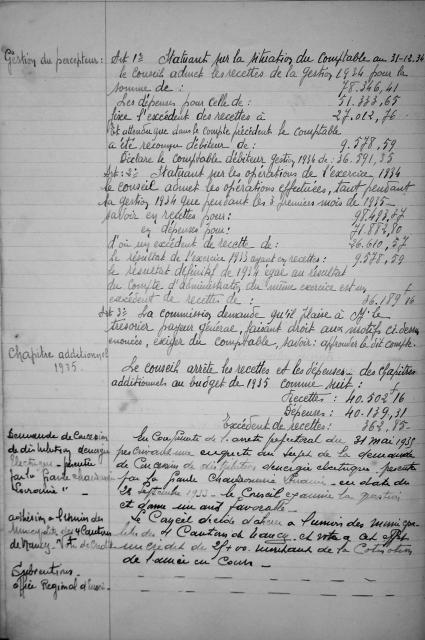 Gestion du percepteur :
Art 1er Statuant sur la situation du Comptable au 31-12-34
le conseil admet les recettes de la gestion 1934 pour la
somme de : 78.346,41
Les dépenses pour celle de : 51.333,65
fixe l'excédent des recettes à 27.012,76
Et attendu que dans le compte précédent le comptable
a été reconnu débiteur de : 9.578,59
Déclare le comptable débiteur gestion 1934 de : 36.591,35
Art : 2 : Statuant sur les opérations de l'exercice 1934
le conseil admet les opérations effectuées, tant pendant
la gestion 1934 que pendant les 3 premiers mois de 1935
savoir en recettes pour : 98.493,37
en dépenses pour : 71.882,80
d'où un excédent de recette de : 26.610,57
le résultat de l'exercice 1933 ayant en recettes : 9.578,59
le résultat définitif de 1934 égal au résultat
du Compte d'administration du même exercice est un
excédent de recettes de : 36.189 16
Art 3 : La commission demande qu'il plaise à Mr le
trésorier payeur général, faisant droit aux motifs ci dessus
énoncés, exiger du comptable, savoir : approuver le dit compte.
Chapitre additionnel
1935.
Le conseil arrête les recettes et les dépenses des chapitres
additionnels au budget de 1935 comme suit :
Recettes : 40.502 16
Dépenses : 40.139,31
Excédent de recettes : 362,85
Demande de Concession
de distribution d'énergie
électrique
par la
Lorraine" -
En Conformité de l'arrêté préfectoral du 31 mai 1935
prescrivant une enquête au sujet de la demande
de Concession de distribution d'énergie électrique
par la en date du
28 Septembre 1933 - le Conseil examine la question
et donne un avis favorable -
adhésion à l'Union des
Municipalités des 4 Cantons
de Nancy -
le Conseil décide d'adhérer à l'union des municipa
lités des 4 Cantons de Nancy et vote à cet effet
un crédit de montant de la Cotisation
de l'année en Cours -
Subventions
office Régional